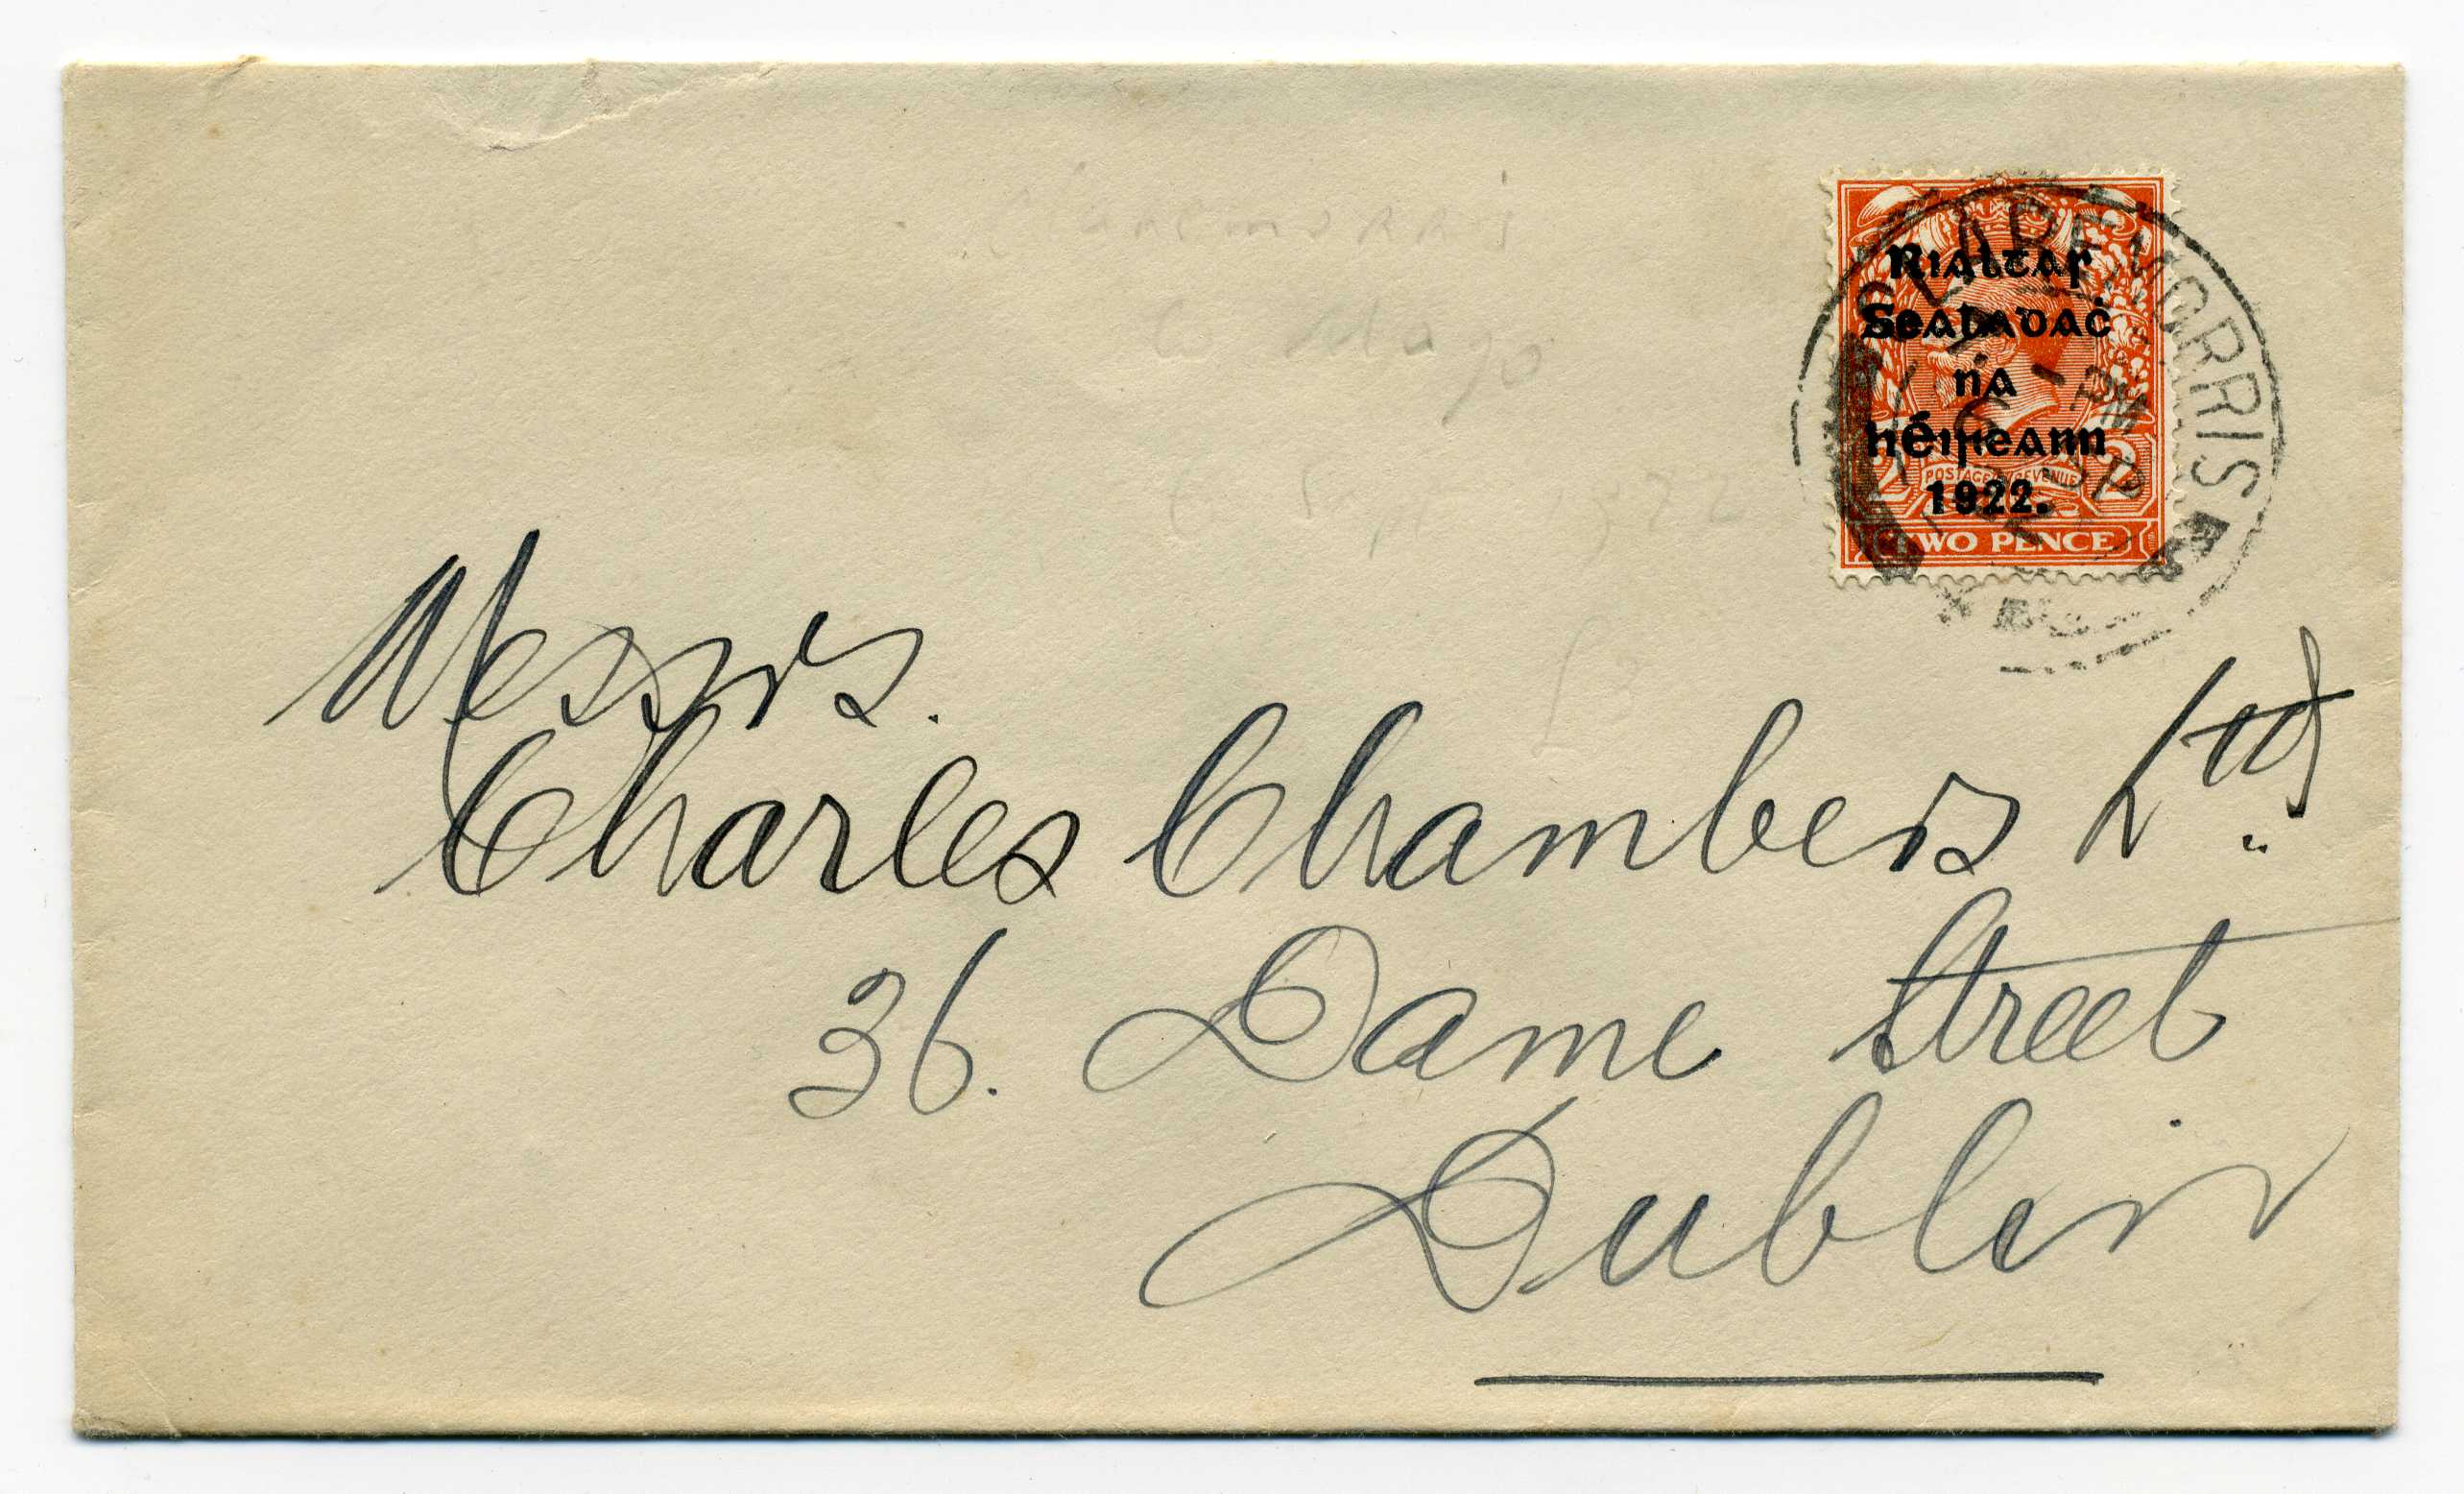 Claremorris
Co Mayo
6 Sep 1922
Rialtaꞅ
Sealadaċ
na
hÉiꞃeann
1922.
POSTAGE REVENUE
TWO PENCE
CLAREMORRIS
PM
6 SP
22
Messrs.
Charles Chambers Ltd
36. Dame Street
Dublin